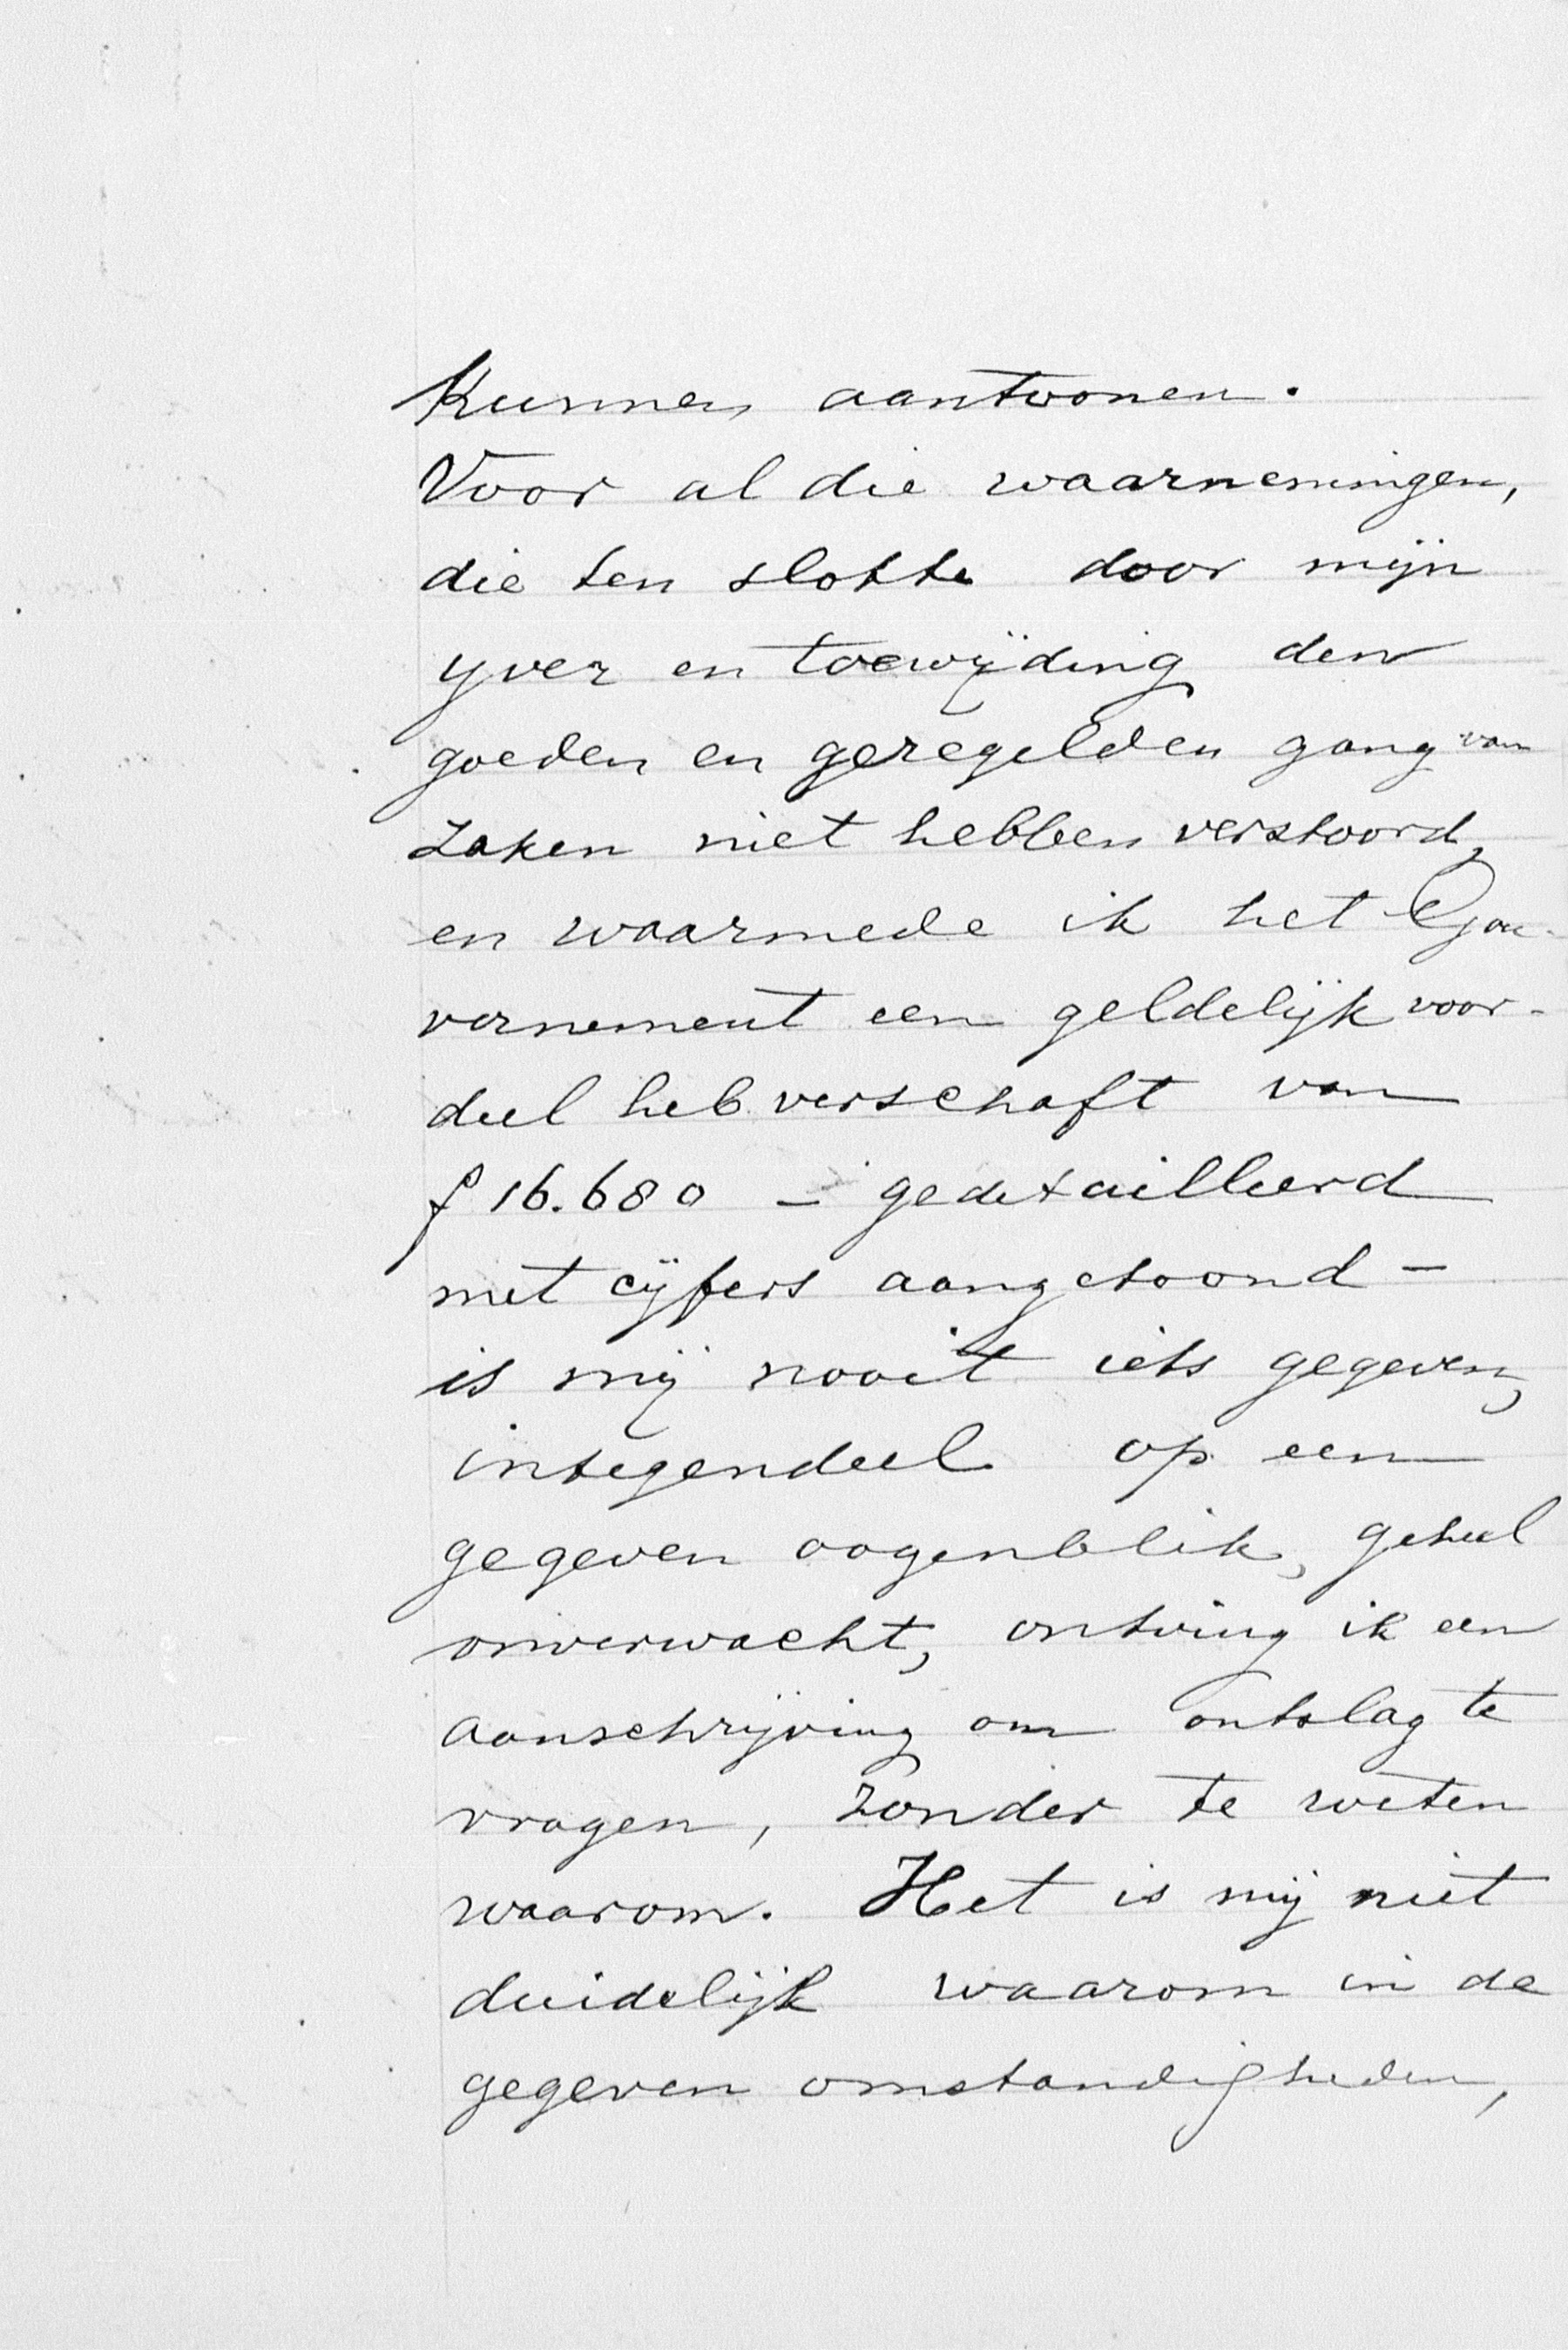 kunnen aantoonen.
Voor al die waarnemingen,
die ten slotte door mijn
yver en toewijding den
goeden en geregelden gang van
zaken niet hebben verstoord,
en waarmede ik het Gou-
vernement een geldelijk voor-
deel heb verschaft van
f 16.680 – gedetailleerd
met cijfers aangetoond –
is mij nooit iets gegeven,
integendeel op een
gegeven oogenblik, geheel
onverwacht, ontving ik een
aanschrijving om ontslag te
vragen, zonder te weten
waarom. Het is mij niet
duidelijk waarom in de
gegeven omstandigheden,